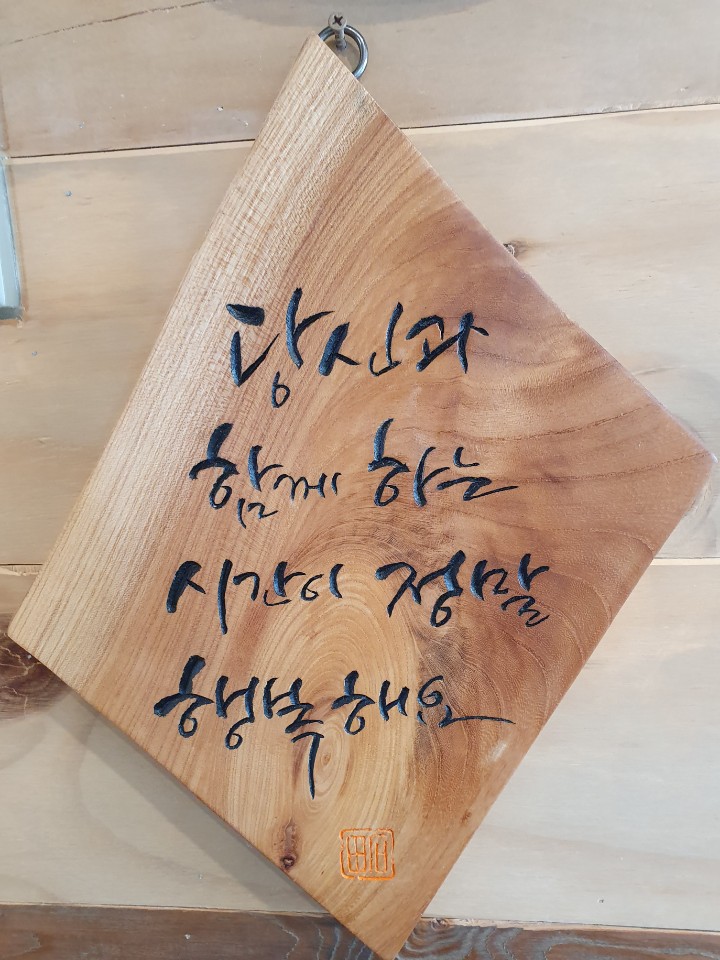 당신과
함께 하는
시간이 정말
행복해요